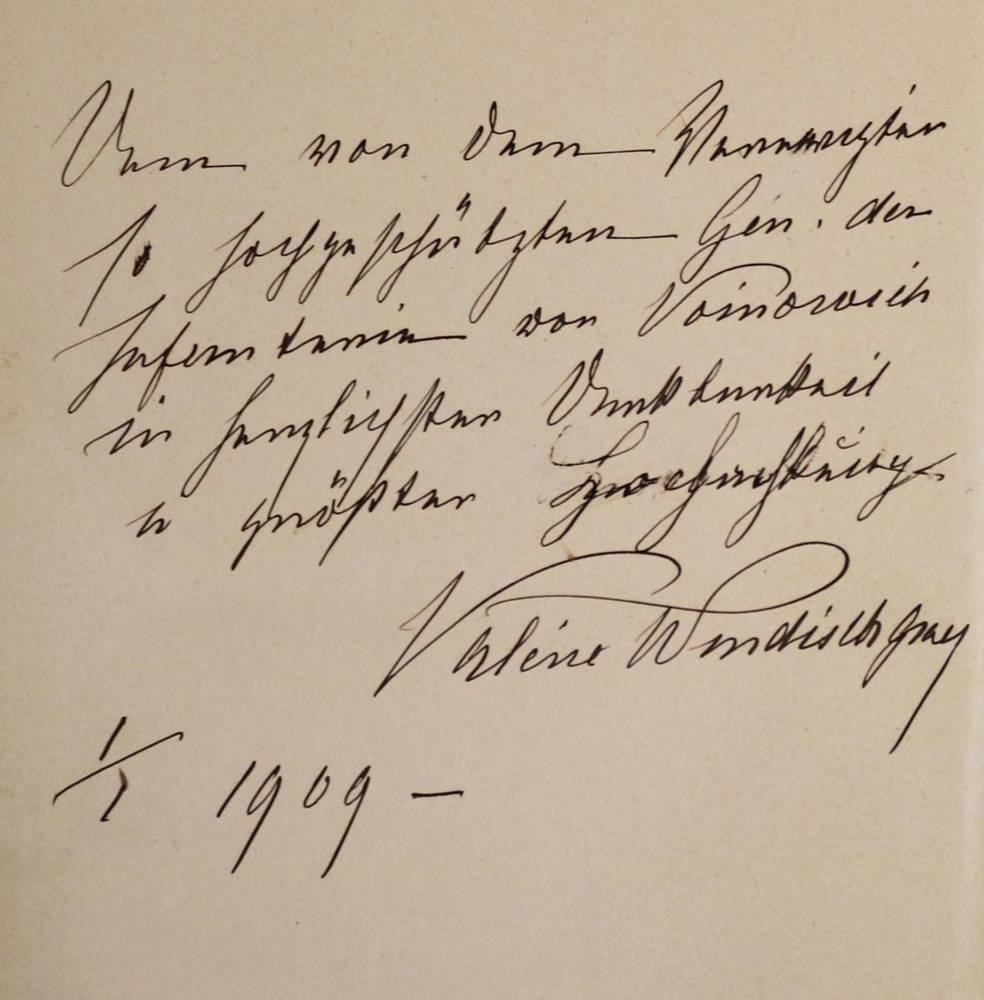 Dem von dem Verewigten
so hochgeschätzten Gen. der
Infanterie von Woinowich
in herzlichster Dankbarkeit
u größter Hochachtung
Valérie Windischgraetz
1/2 1909 –